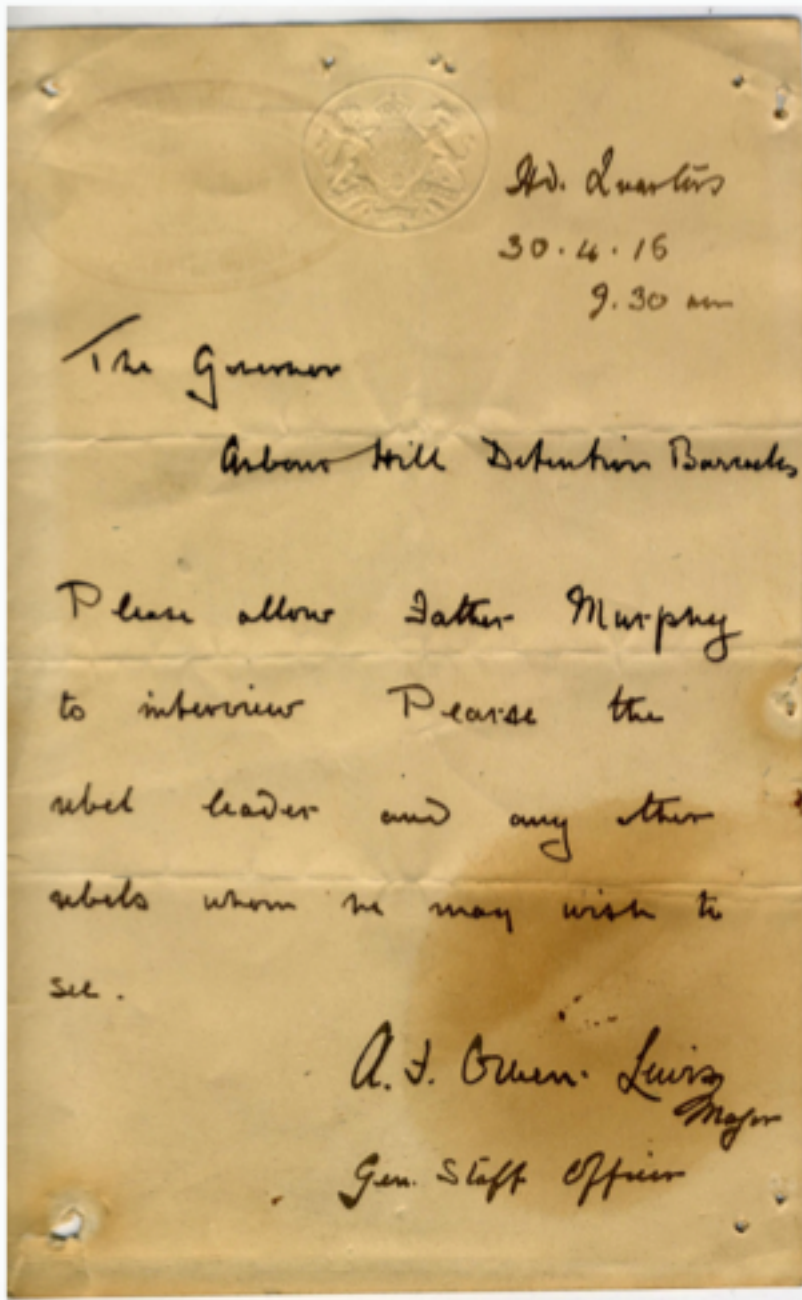 Hd. Quarters
30.4.16
9.30 am
The Governor
Arbour Hill Detention Barracks
Please allow Father Murphy
to interview Pearse the
rebel leader and any other
rebels whom he may wish to
see.
A. F. Owen-Lewis
Major
Gen. Staff Officer